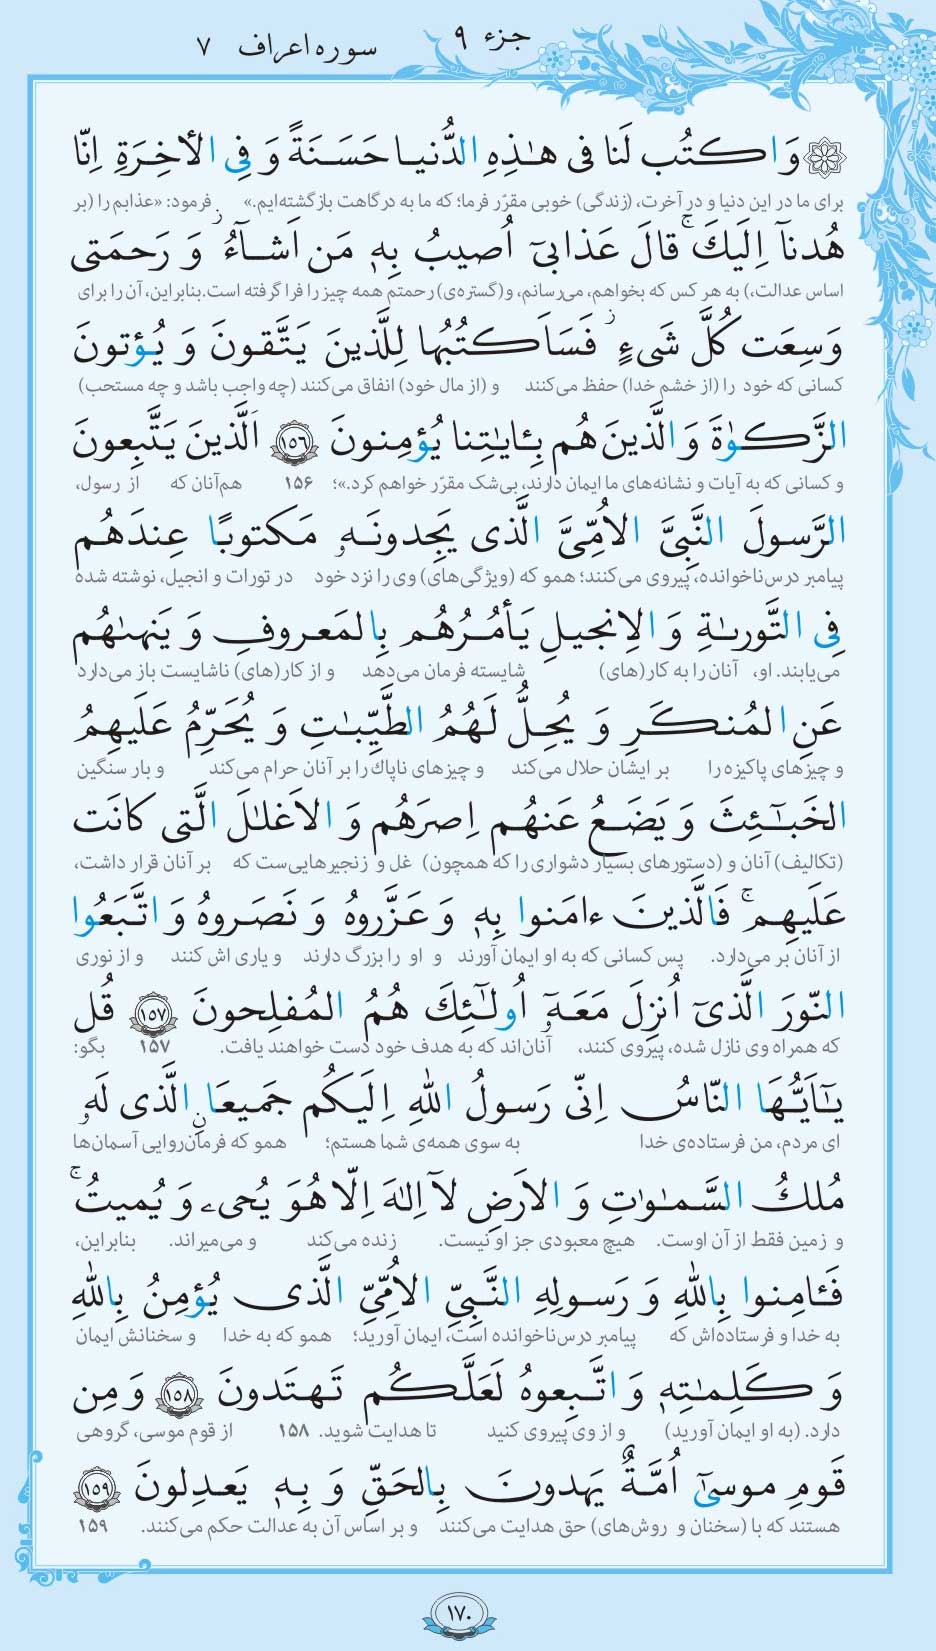 جزء ۹ سوره اعراف ۷
وَاكتُب لَنا فى هٰذِهِ الدُّنيا حَسَنَةً وَ فِى الأخِرَةِ اِنّا
برای ما در این دنیا و در آخرت، (زندگی) خوبی مقرّر فرما؛ که ما به درگاهت بازگشته‌ایم.» فرمود: «عذابم را (بر
هُدنآ اِلَيكَ ۚ قالَ عَذابىٓ اُصيبُ بِهٖ مَن اَشآءُ ز وَ رَحمَتى
اساس عدالت،) به هر کس که بخواهم، می‌رسانم، و(گستره‌ی) رحمتم همه چیز را فرا گرفته است.بنابراین، آن را برای
وَسِعَت كُلَّ شَىءٍ ز فَسَاَكتُبُها لِلَّذينَ يَتَّقونَ وَ يُؤتونَ
کسانی که خود را (از خشم خدا) حفظ می‌کنند و (از مال خود) انفاق می‌کنند (چه واجب باشد و چه مستحب)
الزَّكوٰةَ وَ الَّذينَ هُم بِـٔايٰتِنا يُؤمِنونَ ١٥٦ اَلَّذينَ يَتَّبِعونَ
و کسانی که به آیات و نشانه‌های ما ایمان دارند، بی‌شک مقرّر خواهم کرد.»؛ ۱۵۶ هم‌آنان که از رسول،
الرَّسولَ النَّبِىَّ الاُمِّىَّ الَّذى يَجِدونَهٗ مَكتوبًا عِندَهُم
پیامبر درس‌ناخوانده، پیروی می‌کنند؛ همو که (ویژگی‌های) وی را نزد خود در تورات و انجیل، نوشته شده
فِى التَّورىٰةِ وَ الاِنجيلِ يَأمُرُهُم بِالمَعروفِ وَ يَنهىٰهُم
می‌یابند. او، آنان را به کار(های) شایسته فرمان می‌دهد و از کار(های) ناشایست باز می‌دارد
عَنِ المُنكَرِ وَ يُحِلُّ لَهُمُ الطَّيِّبٰتِ وَ يُحَرِّمُ عَلَيهِمُ
و چیزهای پاکیزه را بر ایشان حلال می‌کند و چیزهای ناپاك را بر آنان حرام می‌کند و بار سنگین
الخَبـٰٓئِثَ وَ يَضَعُ عَنهُم اِصرَهُم وَ الاَغلٰلَ الَّتى كانَت
(تکالیف) آنان و (دستورهای بسیار دشواری را که همچون) غل و زنجیرهایی‌ست که بر آنان قرار داشت،
عَلَيهِم ۚ فَالَّذينَ ءامَنوا بِهٖ وَ عَزَّروهُ وَ نَصَروهُ وَ اتَّبَعُوا
از آنان بر می‌دارد. پس کسانی که به او ایمان آورند و او را بزرگ دارند و یاری اش کنند و از نوری
النّورَ الَّذىٓ اُنزِلَ مَعَهٗٓ اُولـٰٓئِكَ هُمُ المُفلِحونَ ١٥٧ قُل
که همراه وی نازل شده، پیروی کنند، آنان‌اند که به هدف خود دست خواهند یافت. ۱۵۷ بگو:
يـٰٓاَيُّهَا النّاسُ اِنّى رَسولُ اللهِ اِلَيكُم جَميعًانِ الَّذى لَهٗ
ای مردم، من فرستاده‌ی خدا به سوی همه‌ی شما هستم؛ همو که فرمان‌روایی آسمان‌ها
مُلكُ السَّمٰوٰتِ وَ الاَرضِ لآ اِلٰهَ اِلّا هُوَ يُحىۦ وَ يُميتُ ۚ
و زمین فقط از آن اوست. هیچ معبودی جز او نیست. زنده می‌کند و می‌میراند. بنابراین،
فَـٔامِنوا بِاللهِ وَ رَسولِهِ النَّبِىِّ الاُمِّىِّ الَّذى يُؤمِنُ بِاللهِ
به خدا و فرستاده‌اش که پیامبر درس‌ناخوانده است، ایمان آورید؛ همو که به خدا و سخنانش ایمان
وَ كَلِمٰتِهٖ وَ اتَّبِعوهُ لَعَلَّكُم تَهتَدونَ ١٥٨ وَ مِن
دارد. (به او ایمان آورید) و از وی پیروی کنید تا هدایت شوید. ۱۵۸ از قوم موسی، گروهی
قَومِ موسىٰٓ اُمَّةٌ يَهدونَ بِالحَقِّ وَ بِهٖ يَعدِلونَ ١٥٩
هستند که با (سخنان و روش‌های) حق هدایت می‌کنند و بر اساس آن به عدالت حکم می‌کنند. ۱۵۹
۱۷۰